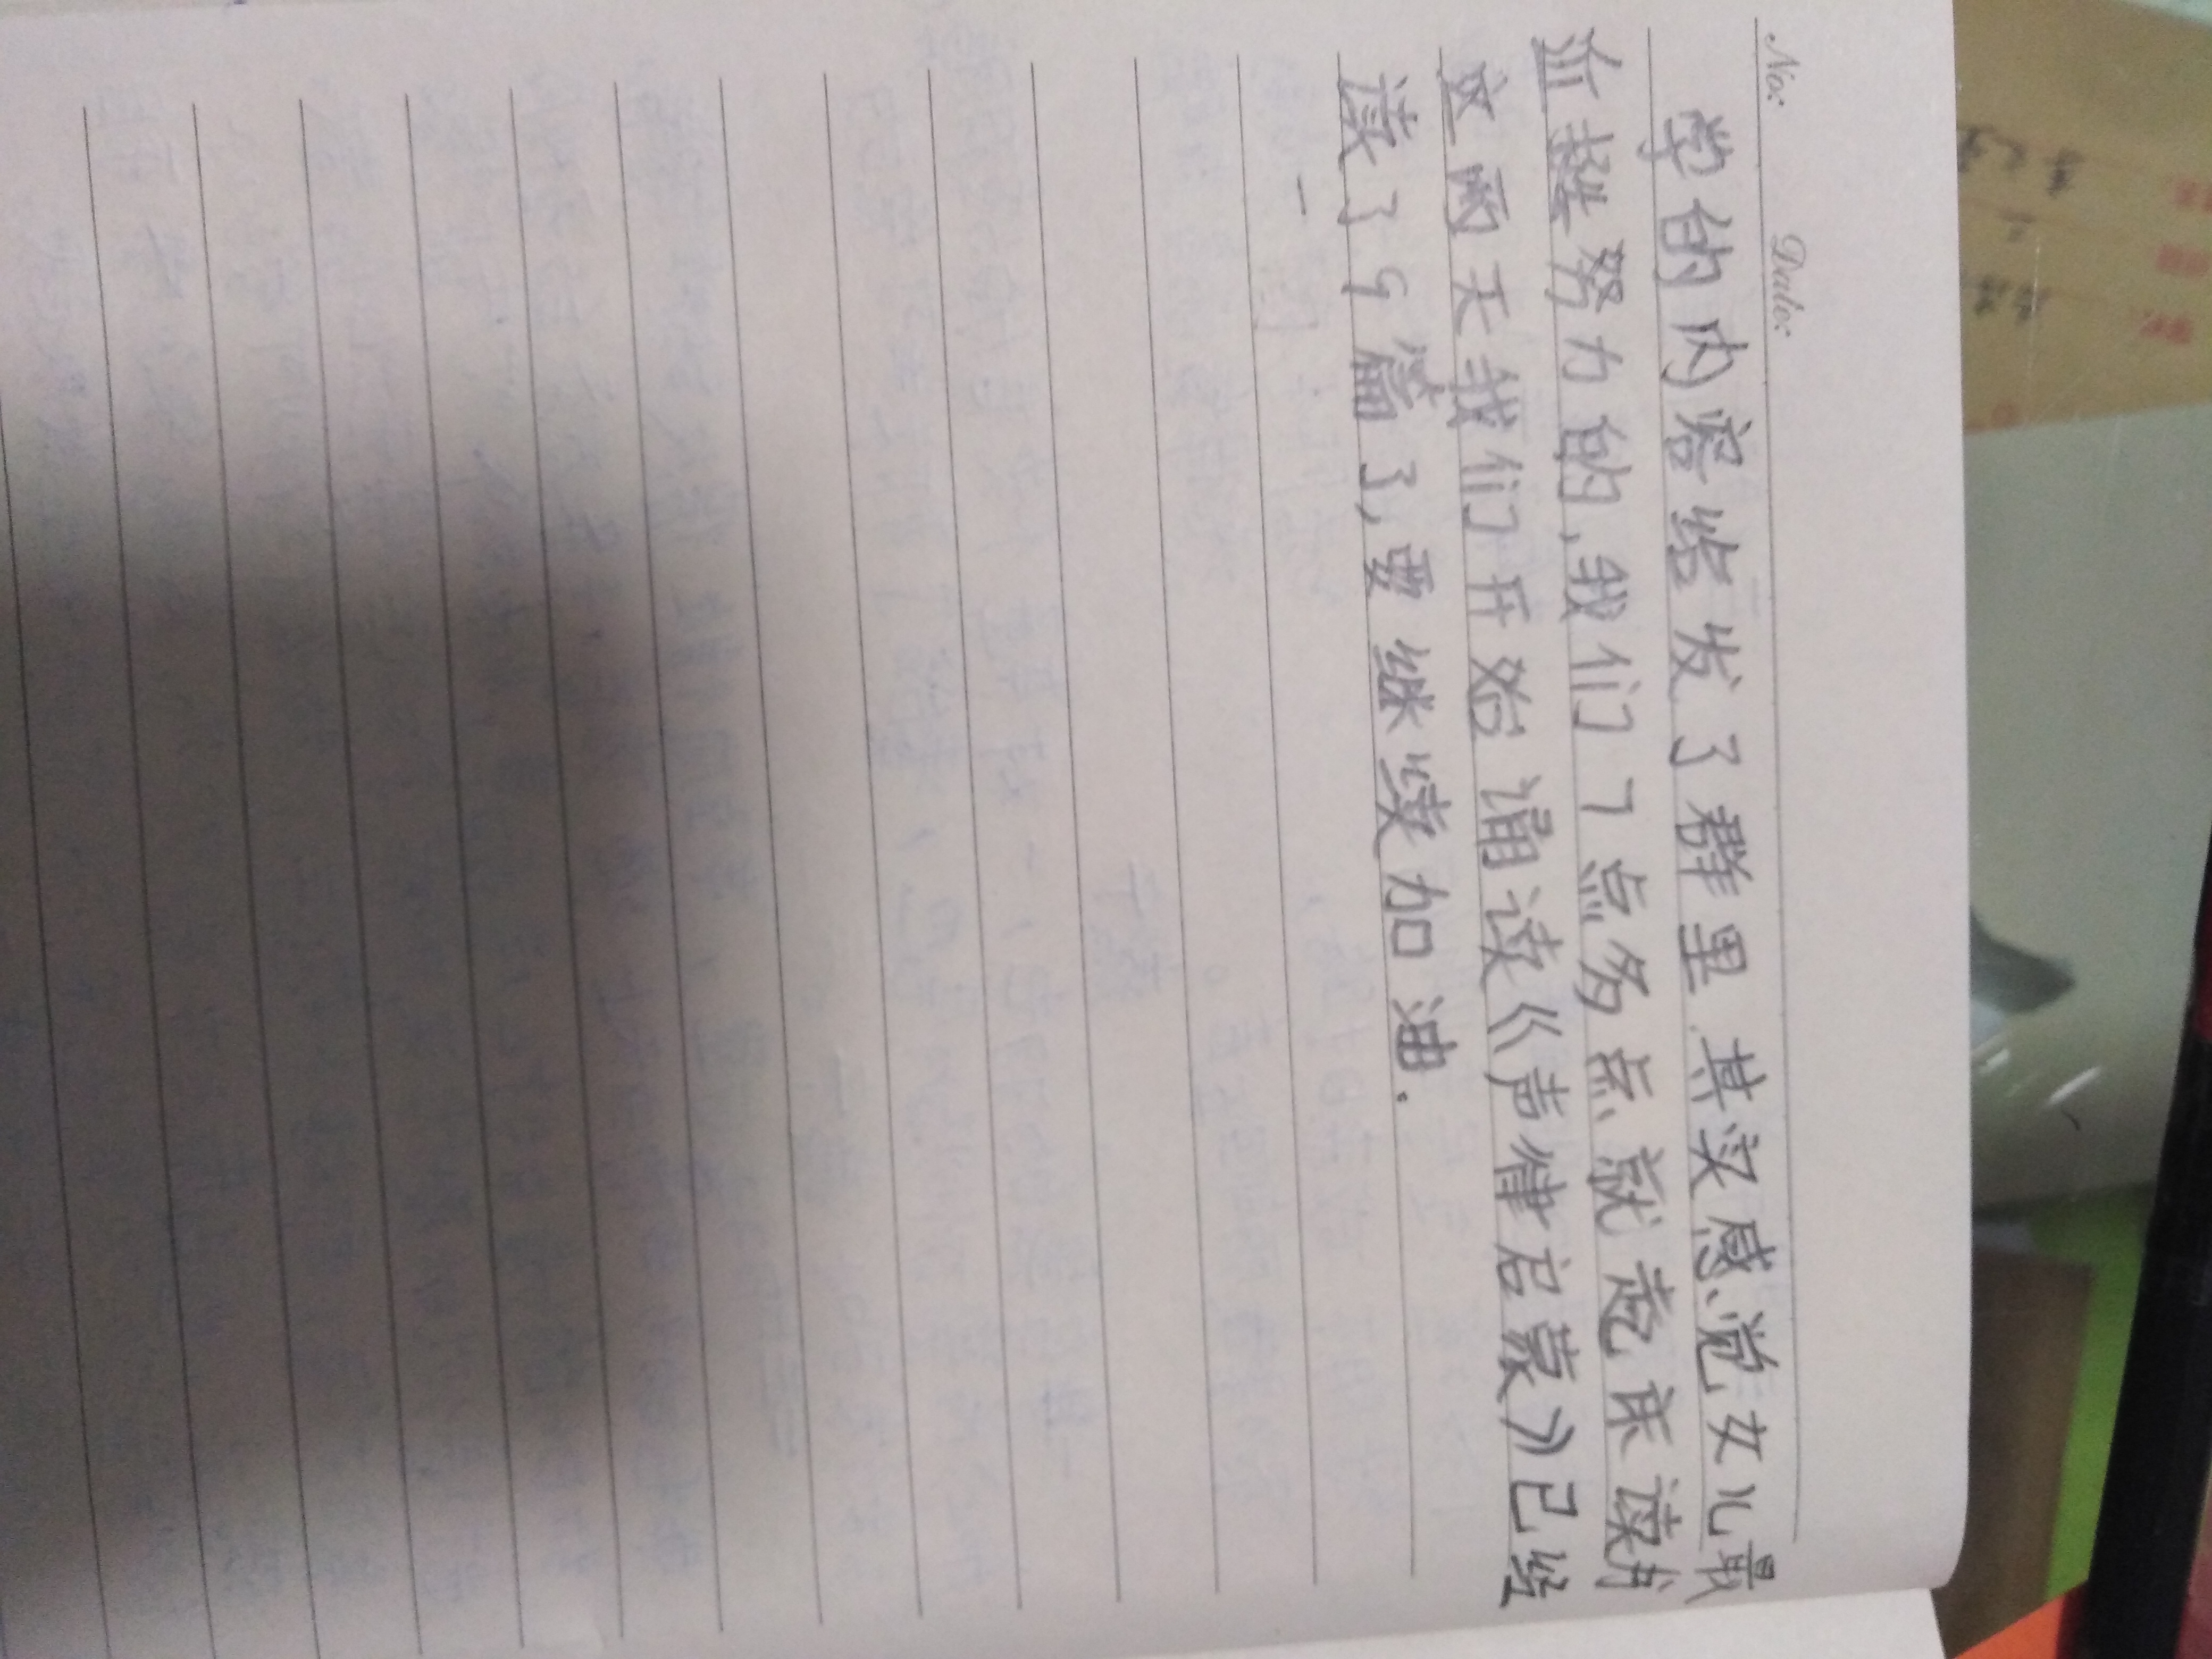 No:
Date:
学的内容给发了群里 其实感觉女儿最
近挺努力的,我们7点多点就起床读书
这两天我们开始诵读《声律启蒙》已经
读了9篇了,要继续加油.